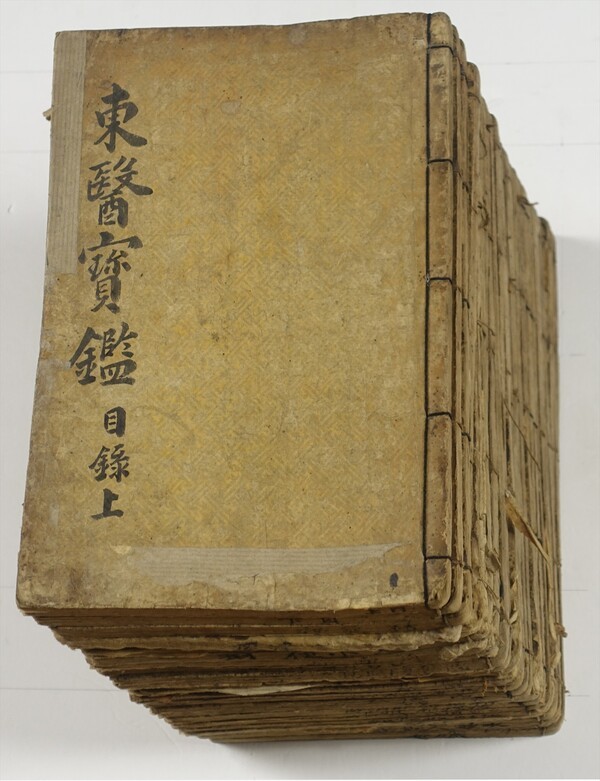 東醫寶鑑 目錄上